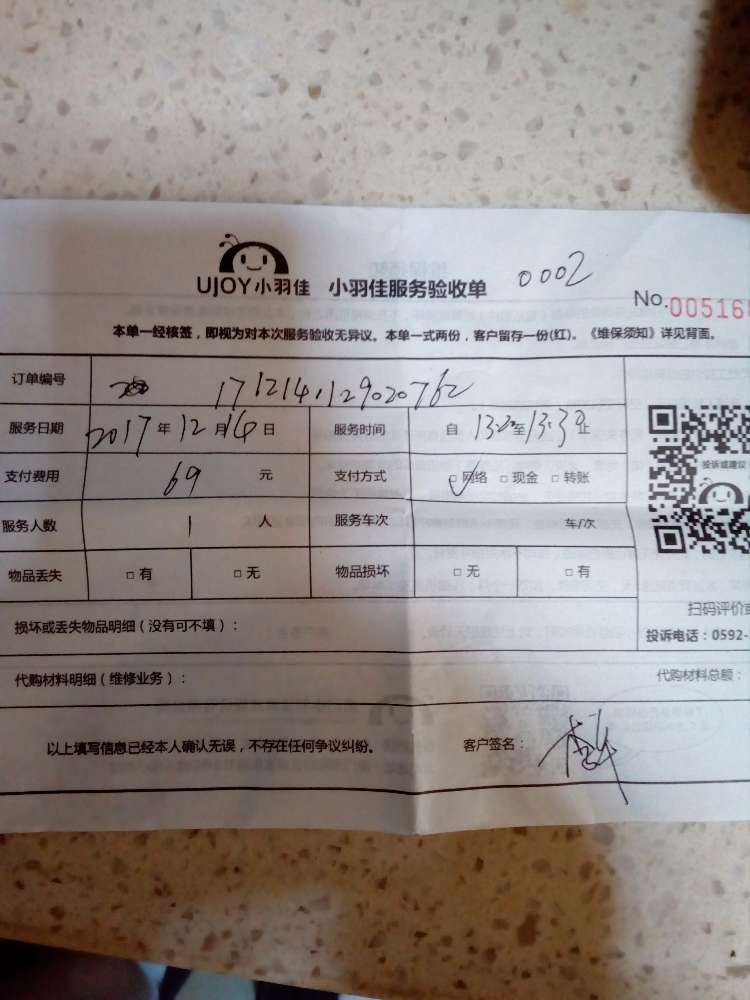 UJOY小羽佳 小羽佳服务验收单 0002
No.005168
本单一经核签，即视为对本次服务验收无异议。本单一式两份，客户留存一份(红)。《维保须知》详见背面。
订单编号 171214129020762
服务日期 2017年12月14日 服务时间 自 13:20至13:30止
支付费用 69 元 支付方式 □网络 □现金 □转账
投诉或建议
服务人数 1 人 服务车次 车/次
物品丢失 □有 □无 物品损坏 □无 □有
扫码评价
损坏或丢失物品明细（没有可不填）：
投诉电话：0592-
代购材料明细（维修业务）： 代购材料总额：
以上填写信息已经本人确认无误，不存在任何争议纠纷。 客户签名：